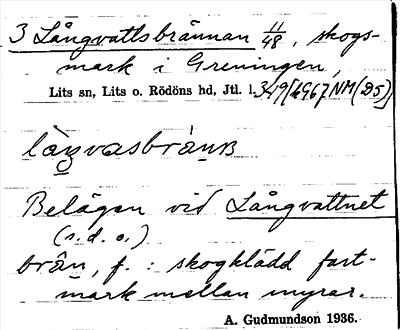 3 Långvattsbrännan 11/48, skogs-
mark i Greningen,
Lits sn, Lits o. Rödöns hd, Jtl. l.
Belägen vid Långvattnet
(s. d. o.)
brän, f. : skogklädd fast-
mark mellan myrar.
A. Gudmundson 1936.